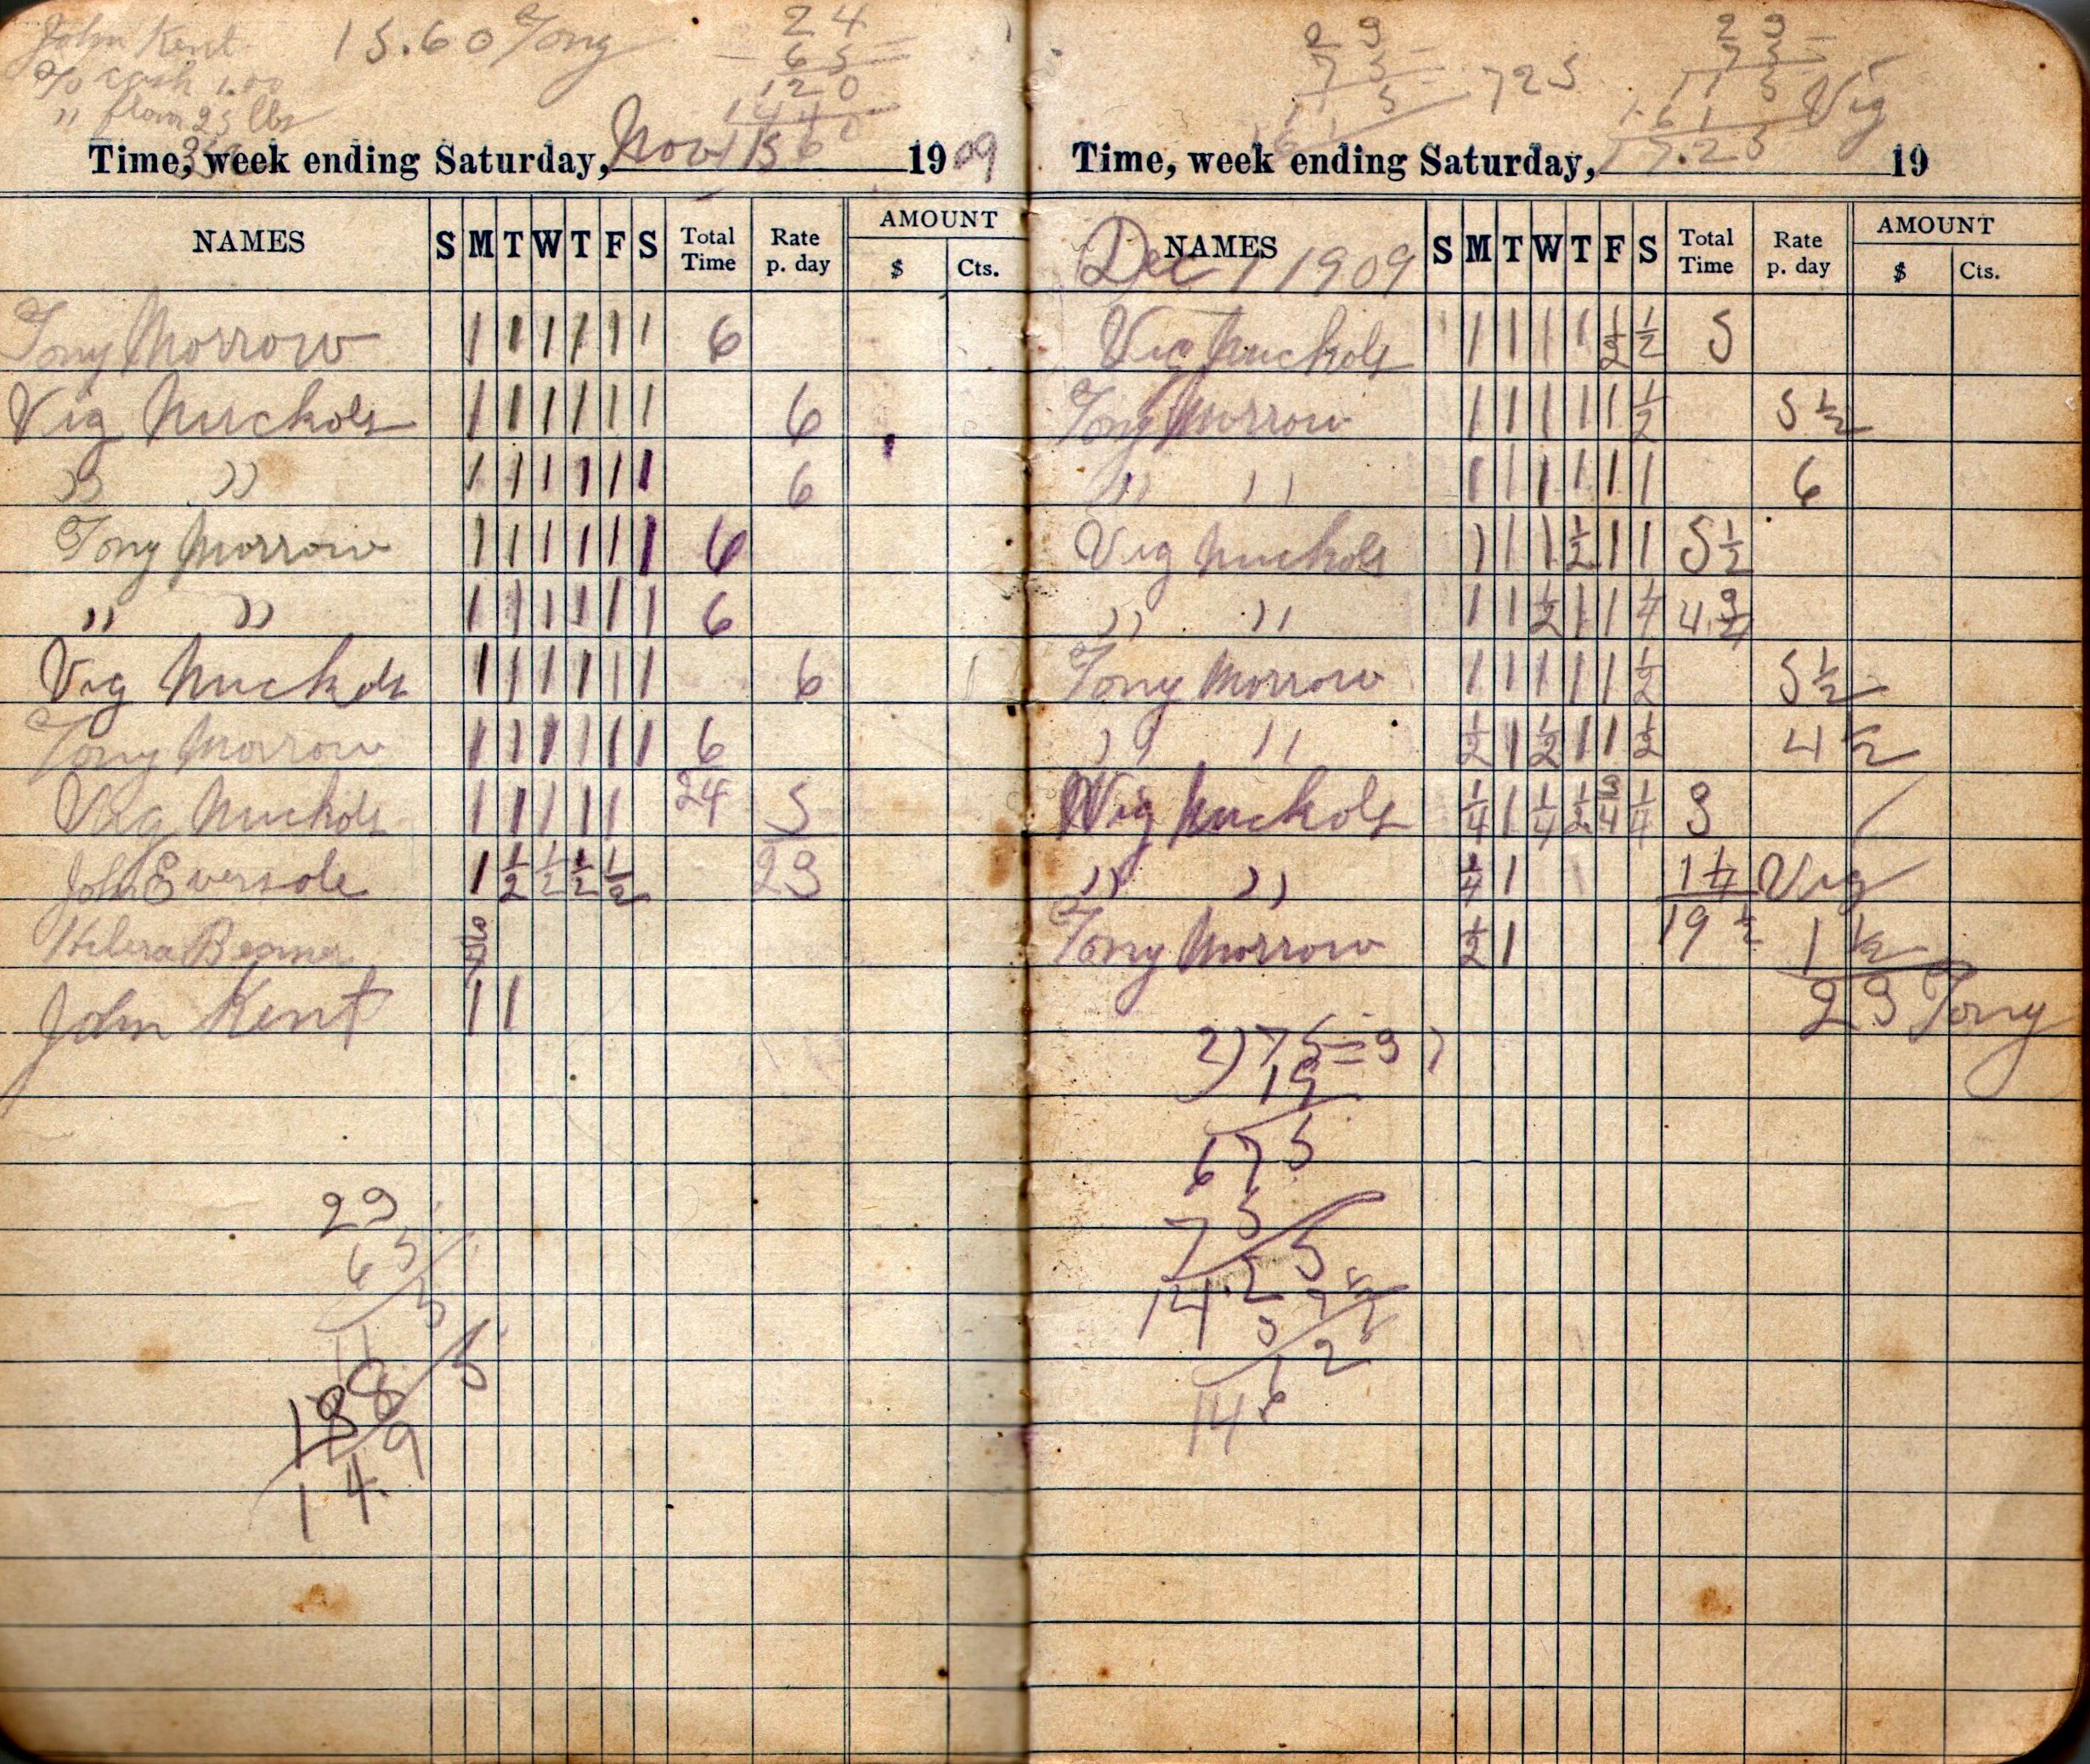 John Kent 15.60 Tony 24
To cash 1.00 65
" flour 25 lbs 120
144
Time, week ending Saturday, Nov 1 1909
NAMES S M T W T F S Total Time Rate p. day AMOUNT $ Cts.
Tony Morrow 1 1 1 1 1 1 6
Vig Nuckols 1 1 1 1 1 1 6
" " 1 1 1 1 1 1 6
Tony Morrow 1 1 1 1 1 1 6
" " 1 1 1 1 1 1 6
Vig Nuckols 1 1 1 1 1 1 6
Tony Morrow 1 1 1 1 1 1 6
Vig Nuckols 1 1 1 1 1 24 5
John Eversole 1 1/2 1/2 1/2 1/2 23
John Kent 1 1
29
65
14
23 23
73 725 73 Vig
161 161
17.25
Time, week ending Saturday, 19
NAMES S M T W T F S Total Time Rate p. day AMOUNT $ Cts.
Dec 1 1909
Vig Nuckols 1 1 1 1 1/2 1/2 5
Tony Morrow 1 1 1 1 1 1/2 5 1/2
" " 1 1 1 1 1 1 6
Vig Nuckols 1 1 1 1/2 1 1 5 1/2
" " 1 1 1/2 1 1 1/4 4 3/4
Tony Morrow 1 1 1 1 1 1/2 5 1/2
" " 1/2 1 1/2 1 1 1/2 4 1/2
Vig Nuckols 1/4 1 1/4 1/2 3/4 1/4 3
" " 1/4 1 1 1/4 Vig
Tony Morrow 1/2 1 19 1/2 1 1/2
23 Tony
2)75=3
19
675
75
14.25